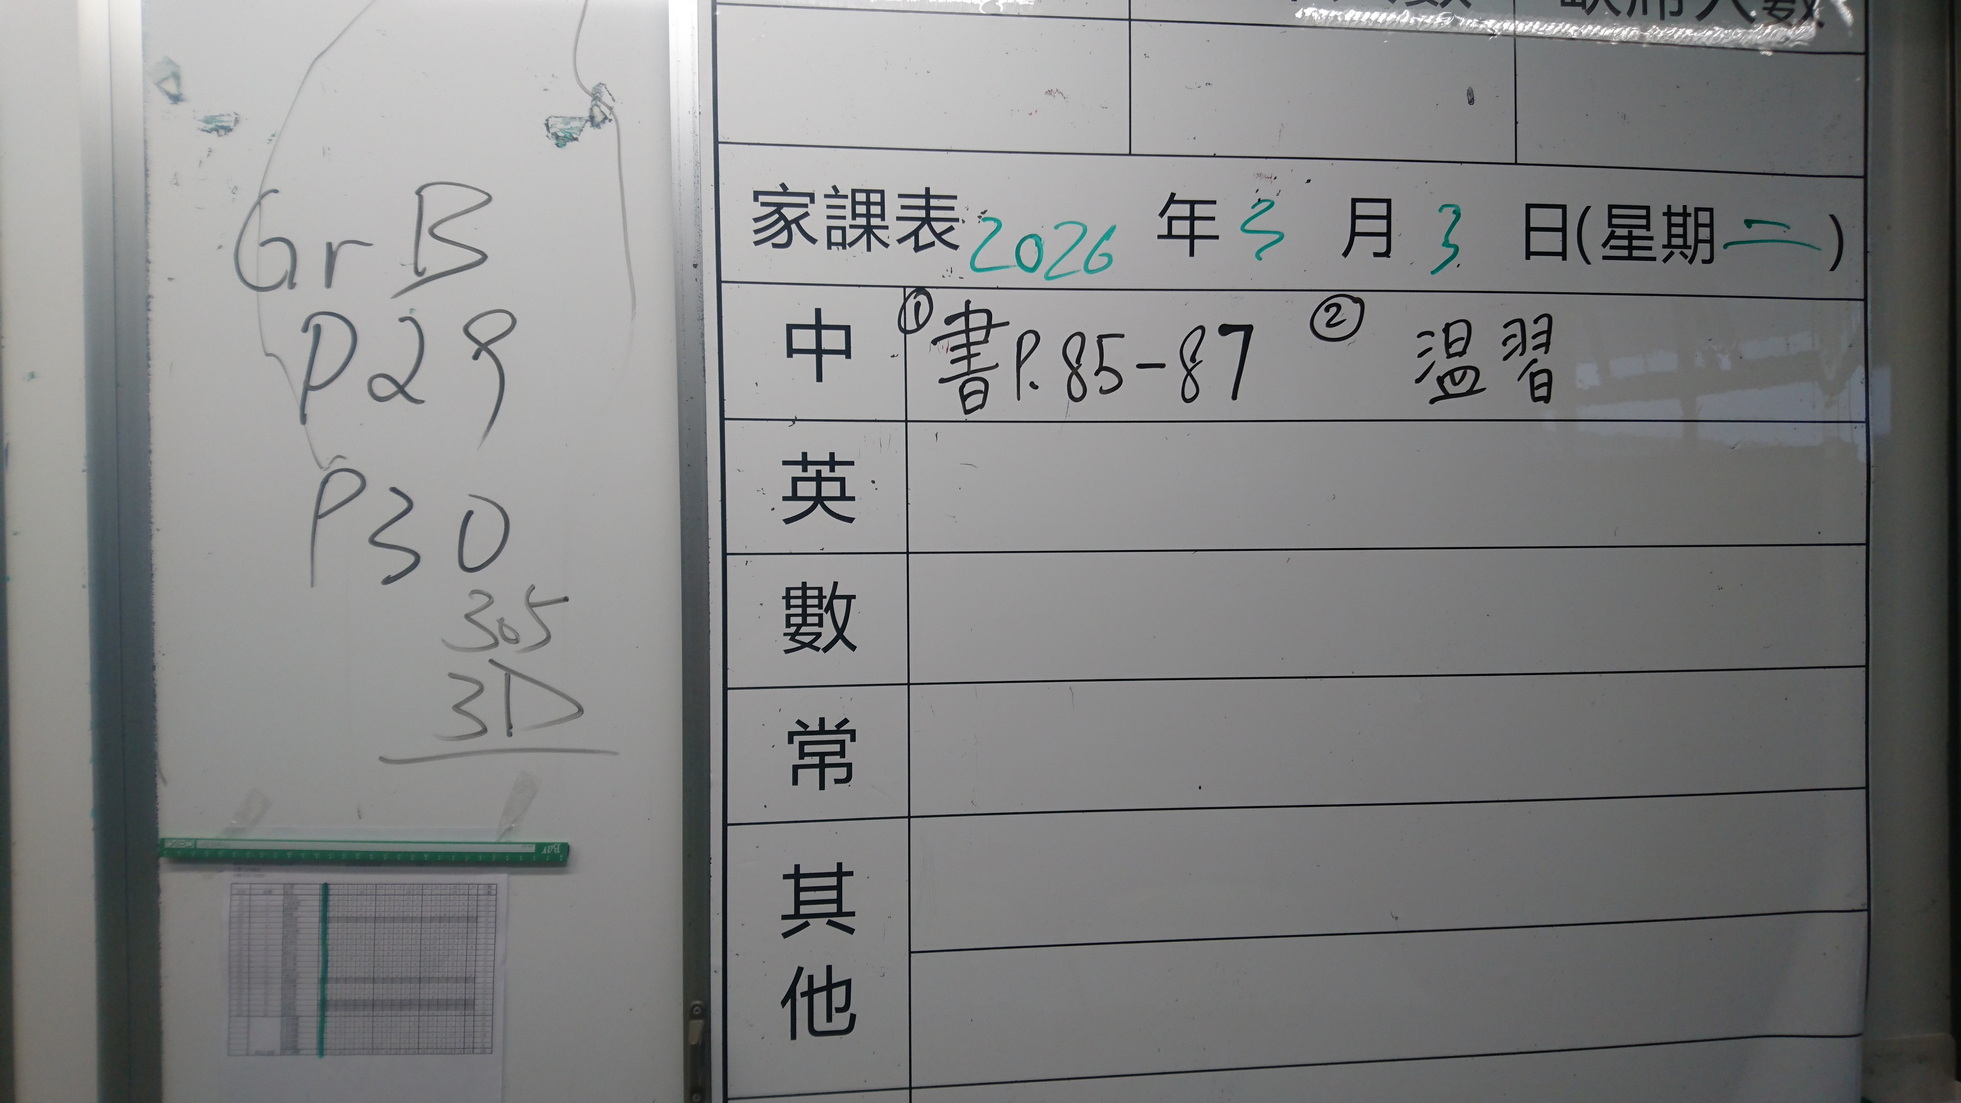 Gr B
P29
P30
305
3D
家課表 2026 年 3 月 3 日(星期二)
中 ① 書P.85-87 ② 溫習
英
數
常
其他